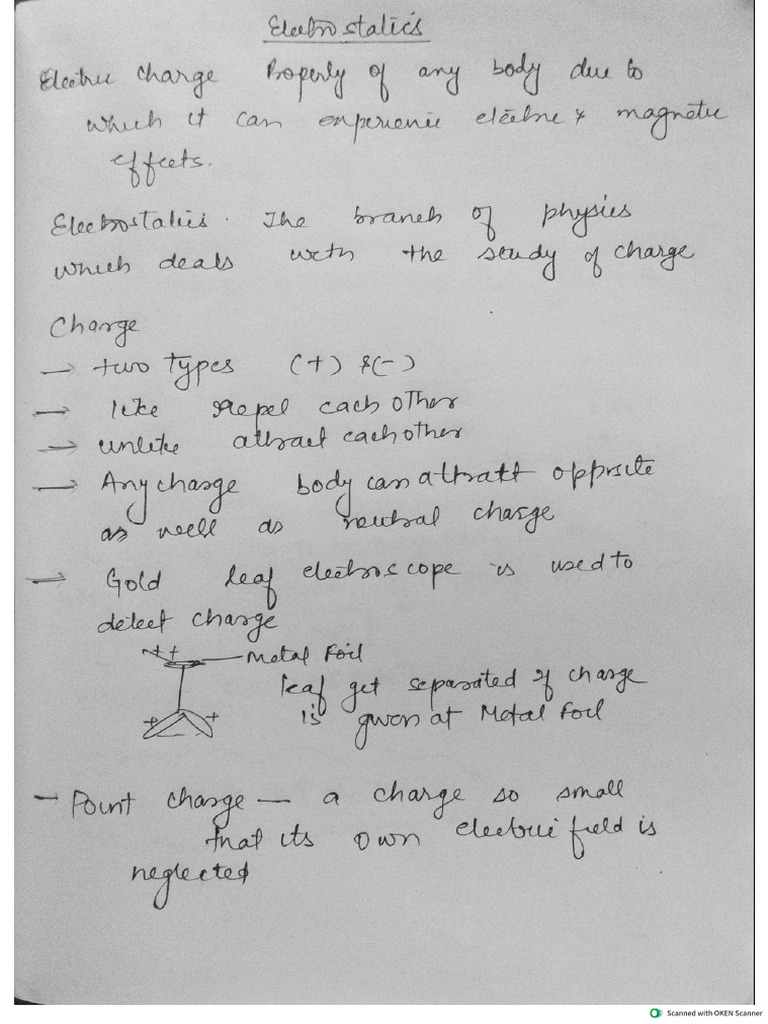 Electrostatics
Electric charge Property of any body due to
which it can experience electric & magnetic
effects.
Electrostatics. The branch of physics
which deals with the study of charge
Charge
→ two types (+) &(-)
→ like repel each other
→ unlike attract each other
→ Any charge body can attract opposite
as well as neutral charge
→ Gold leaf electroscope is used to
detect charge
+++ — Metal Foil
leaf get separated if charge
+ + is given at Metal Foil
- Point charge — a charge so small
that its own electric field is
neglected
Scanned with OKEN Scanner